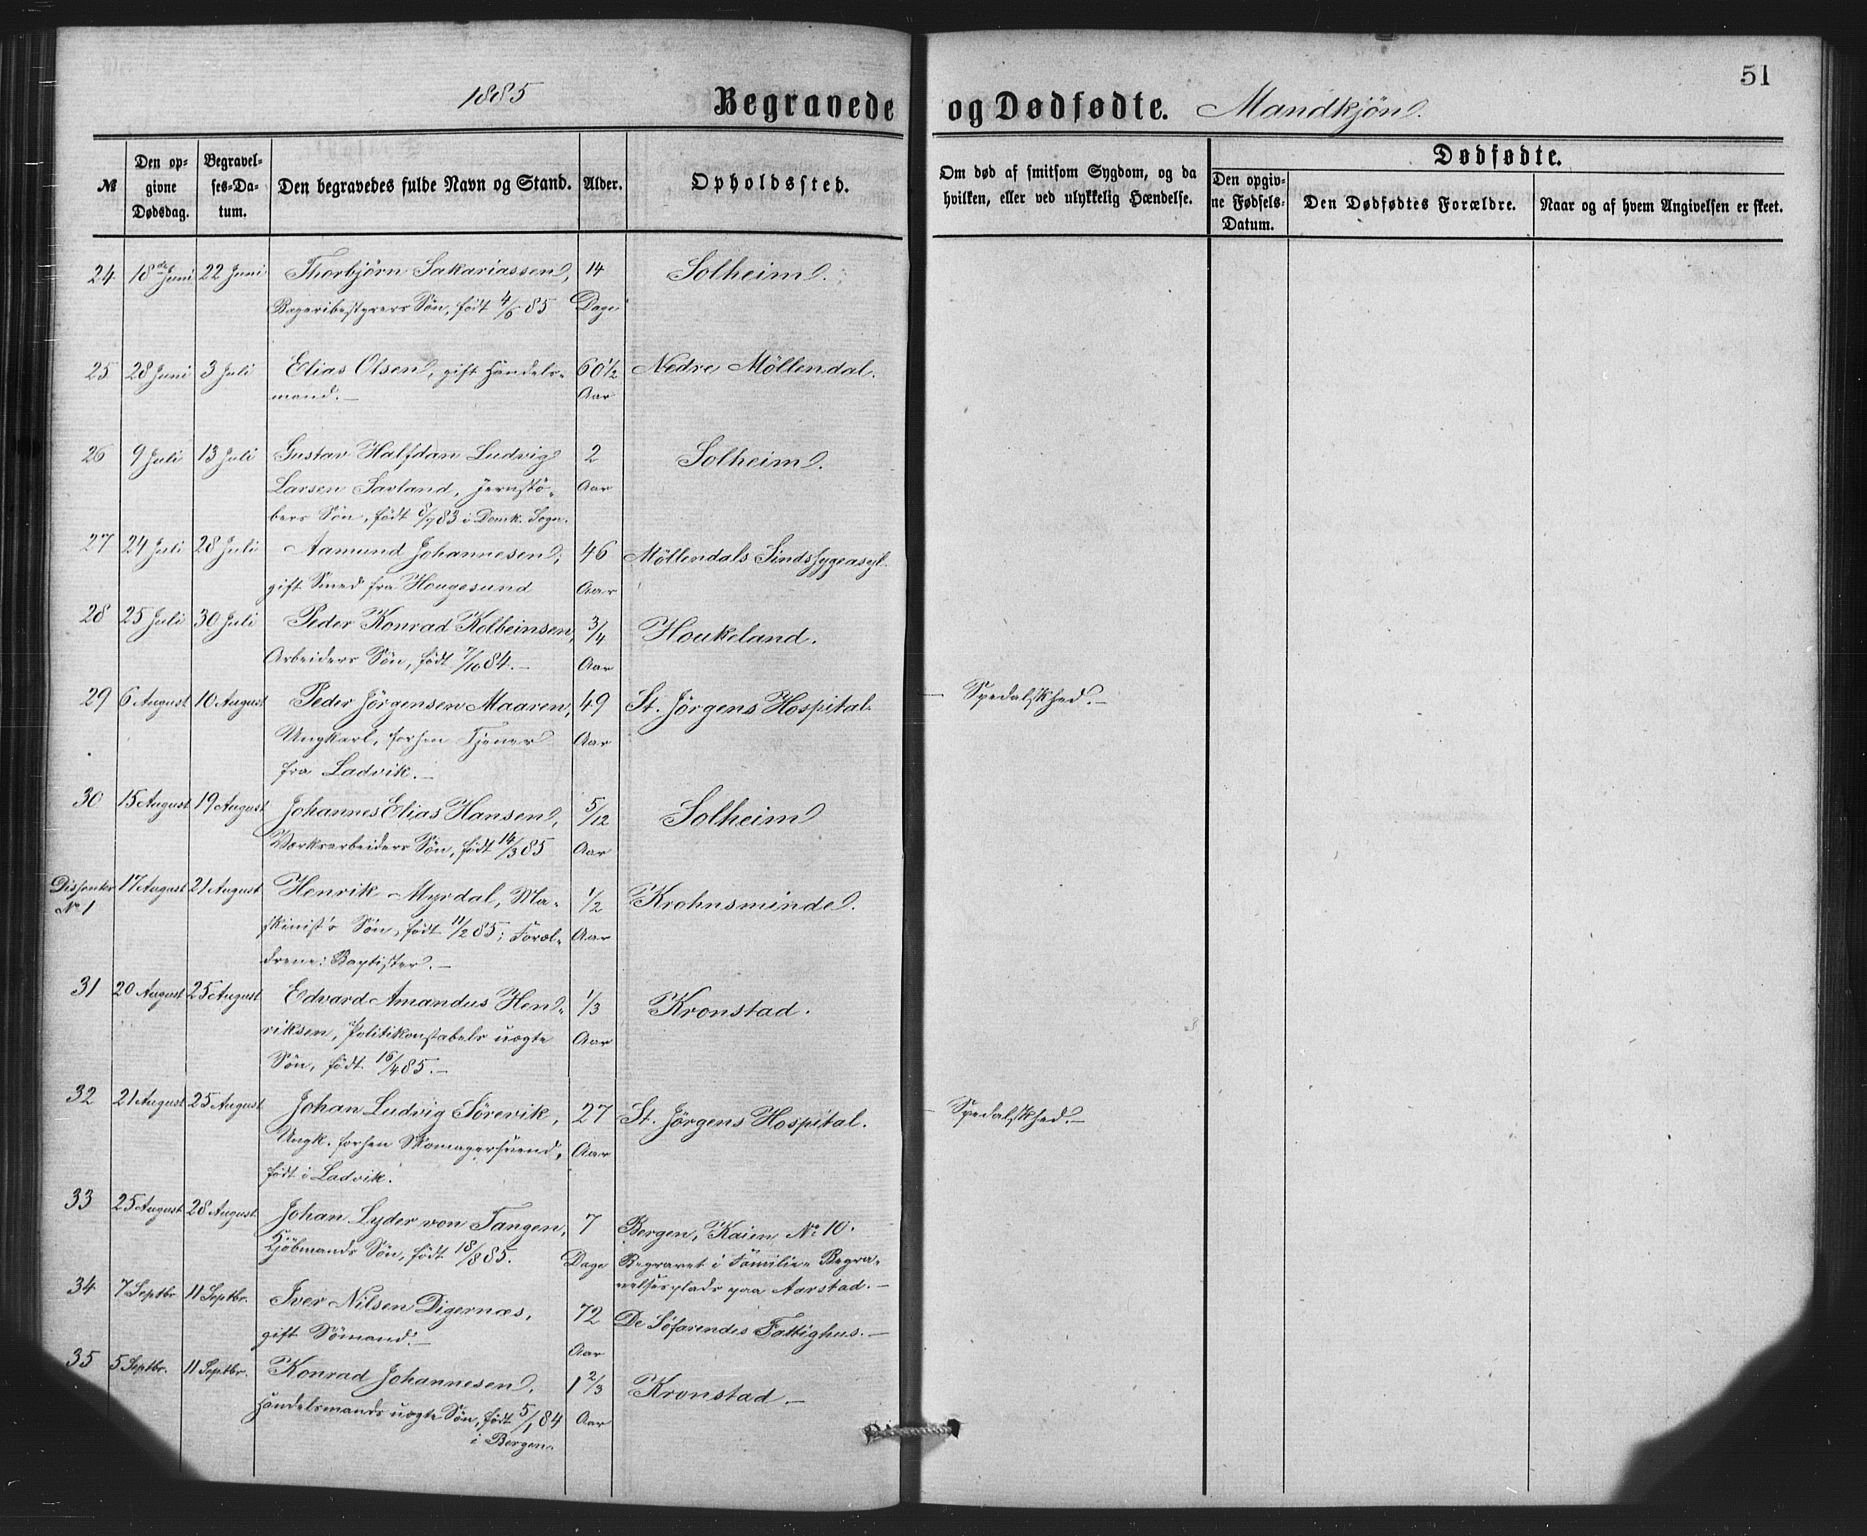 51
1885 Begravede og Dødfødte. Mandkjøn.
№ Den op- Begravel- Den begravedes fulde Navn og Stand. Alder. Opholdssted. Om død af smitsom Sygdom, og da Dødfødte.
givne ses-Da- hvilken, eller ved ulykkelig Hændelse. Den opgiv- Den Dødfødtes Forældre. Naar og af hvem Angivelsen er skeet.
Dødsdag. tum. ne Fødsels-
Datum.
24 18de Juni 22 Juni Thorbjörn Sakariassen, 14 Solheim.
Bageribestyrers Søn, født 4/6 85 Dage
25 28 Juni 3 Juli Elias Olsen, gift Handels- 60 1/2 Nedre Möllendal.
mand.- Aar
26 9 Juli 13 Juli Gustav Halfdan Ludvig 2 Solheim.
Larsen Sarland, Jernstö- Aar
bers Sön, födt 8/7 83 i Domk. Sogn.
27 24 Juli 28 Juli Aamund Johannesen, 46 Möllendals Sindssygeasyl.
gift Smed fra Hougesund Aar
28 25 Juli 30 Juli Peder Konrad Kolbeinsen, 3/4 Houkeland.
Arbeiders Sön, födt 7/10 84.- Aar
29 6 August 10 August Peder Jörgensen Maaren, 49 St. Jörgens Hospital. - Spedalskhed.-
Ungkarl, forhen Tjener Aar
fra Ladvik.-
30 15 August 19 August Johannes Elias Hansen, 5/12 Solheim
Værksarbeiders Sön, født 14/3 85 Aar
Dissenter 17 August 21 August Henrik Myrdal, Ma- 1/2 Krohnsminde.
№ 1 skinist's Sön, födt 11/2 85; Foræl- Aar
drene: Baptister.-
31 20 August 25 August Edvard Amandus Hen- 1/3 Kronstad.
riksen, Politikonstabels uægte Aar
Sön, födt 16/4 85.-
32 21 August 25 August Johan Ludvig Sörevik, 27 St. Jörgens Hospital. - Spedalskhed.-
Ungk. forhen Skomagersvend, Aar
födt i Ladvik.
33 25 August 28 August Johan Lyder von Tangen, 7 Bergen, Kaien № 10.
Kjöbmands Sön, födt 18/8 85. Dage Begravet i Familie-Begra-
velsesplads paa Aarstad.-
34 7 Septbr. 11 Septbr. Iver Nilsen Digernæs, 72 De Söfarendes Fattighus.-
gift Sömand.- Aar
35 5 Septbr. 11 Septbr. Konrad Johannesen, 1 2/3 Kronstad.-
Handelsmands uægte Sön, født 5/1 84 Aar
i Bergen.